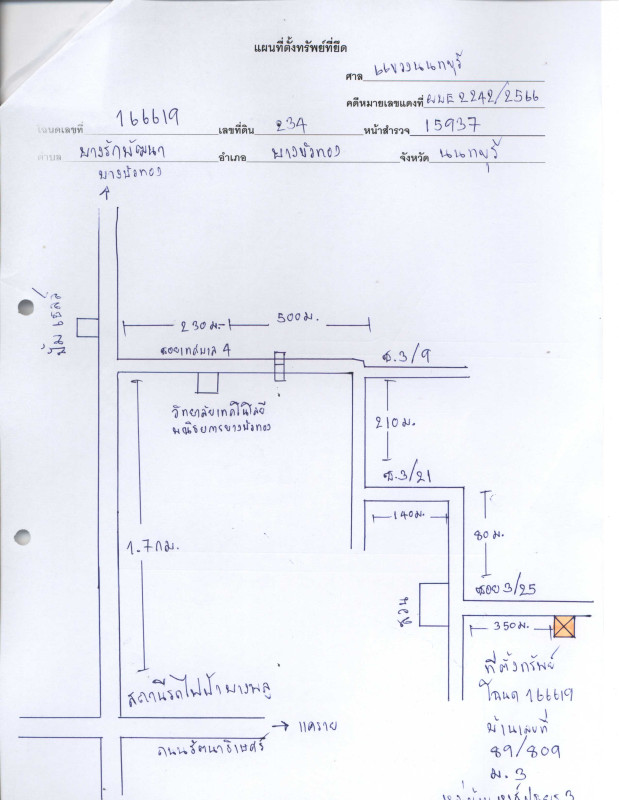 แผนที่ตั้งทรัพย์ที่ยึด
ศาล แขวงนนทบุรี
คดีหมายเลขแดงที่ ผบE 2242/2566
โฉนดเลขที่ 166619 เลขที่ดิน 234 หน้าสำรวจ 15937
ตำบล บางรักพัฒนา อำเภอ บางบัวทอง จังหวัด นนทบุรี
บางบัวทอง
ปั๊มเชลล์
230ม. 500ม.
ซอยเทศบาล 4
ซ.3/9
วิทยาลัยเทคโนโลยี
พณิชยการบางบัวทอง
210ม.
ซ.3/21
140ม.
80ม.
1.7กม.
สวน
ซอย3/25
350ม.
สถานีรถไฟฟ้าบางพลู
→ แคราย
ถนนรัตนาธิเบศร์
ที่ตั้งทรัพย์
โฉนด 166619
บ้านเลขที่
89/809
ม.3